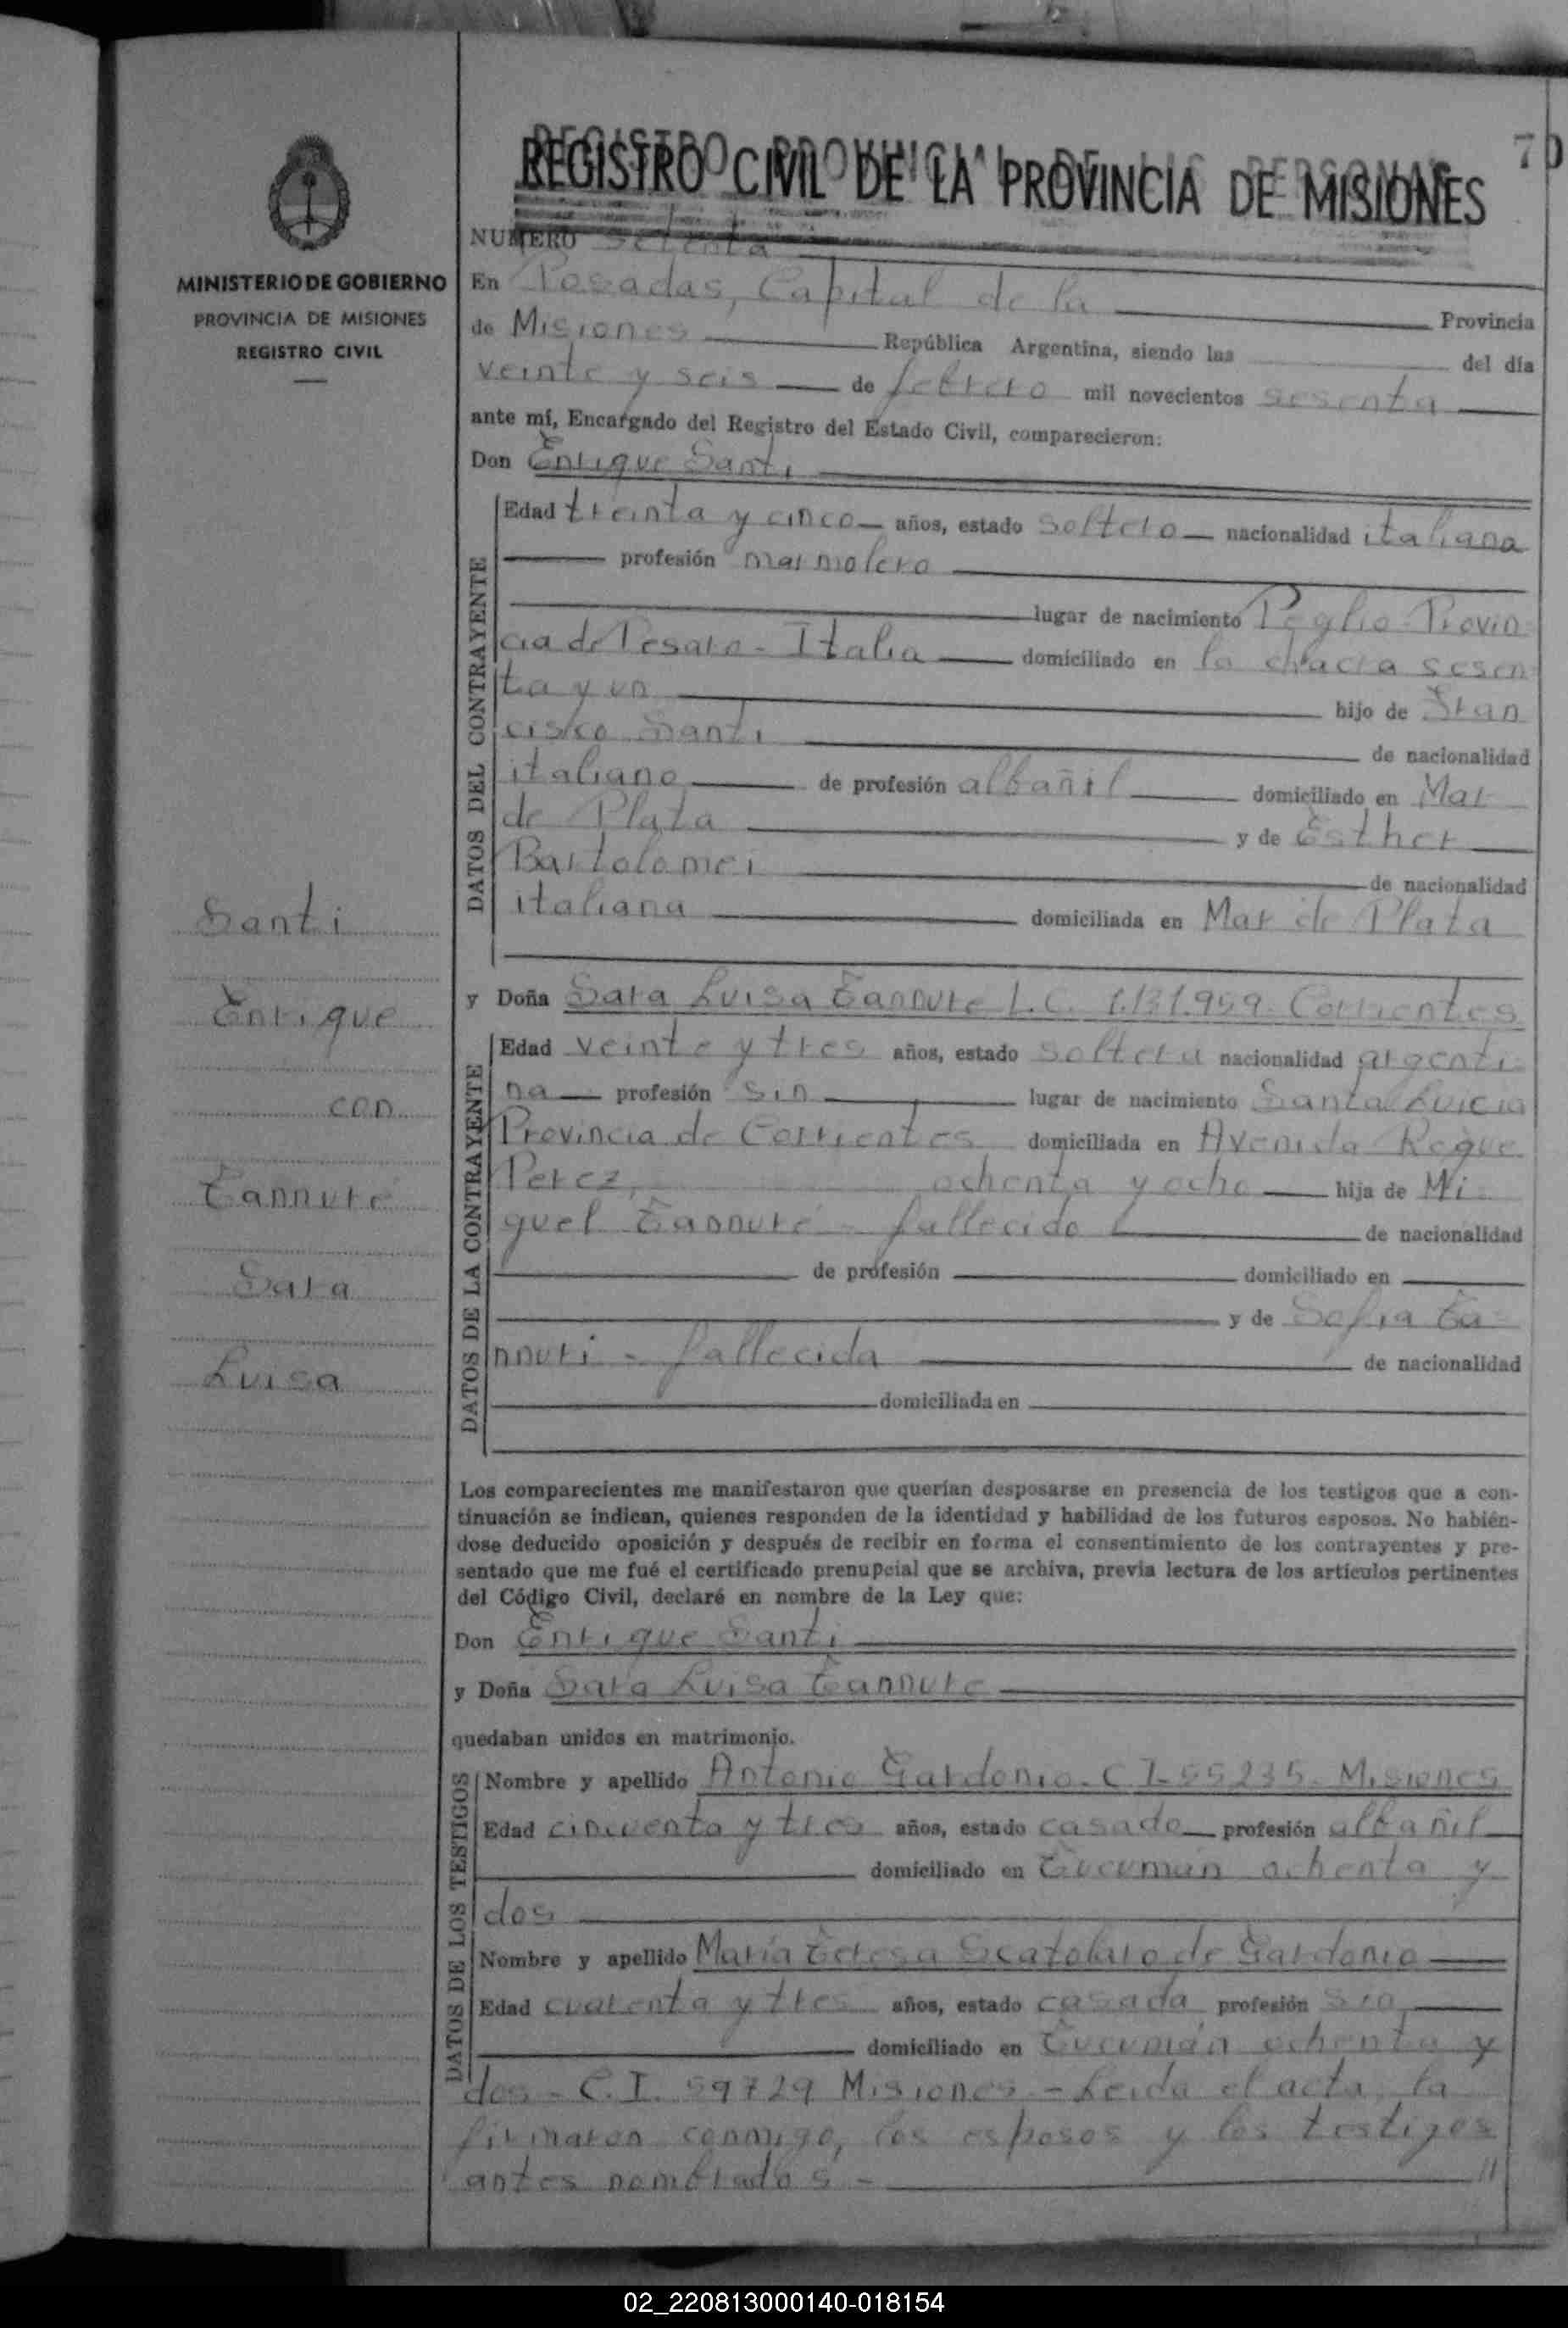 70
REGISTRO CIVIL DE LA PROVINCIA DE MISIONES
MINISTERIO DE GOBIERNO
PROVINCIA DE MISIONES
REGISTRO CIVIL
NUMERO setenta
En Posadas, Capital de la Provincia
de Misiones República Argentina, siendo las del día
veinte y seis de febrero mil novecientos sesenta
ante mí, Encargado del Registro del Estado Civil, comparecieron:
Don Enrique Santi
DATOS DEL CONTRAYENTE
Edad treinta y cinco años, estado soltero nacionalidad italiana
profesión marmolero
lugar de nacimiento Peglio-Provin
cia de Pesaro - Italia domiciliado en la chacra sesen
ta y un hijo de Fran
cisco Santi de nacionalidad
italiano de profesión albañil domiciliado en Mar
de Plata y de Esther
Bartolomei de nacionalidad
italiana domiciliada en Mar de Plata
Santi
Enrique
con
Tannuré
Sara
Luisa
y Doña Sara Luisa Tannure L.C. 1.131.959. Corrientes
DATOS DE LA CONTRAYENTE
Edad veinte y tres años, estado soltera nacionalidad argenti
na profesión sin lugar de nacimiento Santa Lucia
Provincia de Corrientes domiciliada en Avenida Roque
Perez, ochenta y ocho hija de Mi
guel Tannuré - fallecido de nacionalidad
de profesión domiciliado en
y de Sofia Ta
nnuri - fallecida de nacionalidad
domiciliada en
Los comparecientes me manifestaron que querían desposarse en presencia de los testigos que a con-
tinuación se indican, quienes responden de la identidad y habilidad de los futuros esposos. No habién-
dose deducido oposición y después de recibir en forma el consentimiento de los contrayentes y pre-
sentado que me fué el certificado prenupcial que se archiva, previa lectura de los artículos pertinentes
del Código Civil, declaré en nombre de la Ley que:
Don Enrique Santi
y Doña Sara Luisa Tannure
quedaban unidos en matrimonio.
DATOS DE LOS TESTIGOS
Nombre y apellido Antonio Gardonio - C.I. 55235. Misiones
Edad cincuenta y tres años, estado casado profesión albañil
domiciliado en Tucumán ochenta y
dos
Nombre y apellido María Teresa Scatolaro de Gardonio
Edad cuarenta y tres años, estado casada profesión sin
domiciliado en Tucumán ochenta y
dos - C.I. 59729 Misiones - Leida el acta, la
firmaron conmigo, los esposos y los testigos
antes nombrados - //
02_220813000140-018154